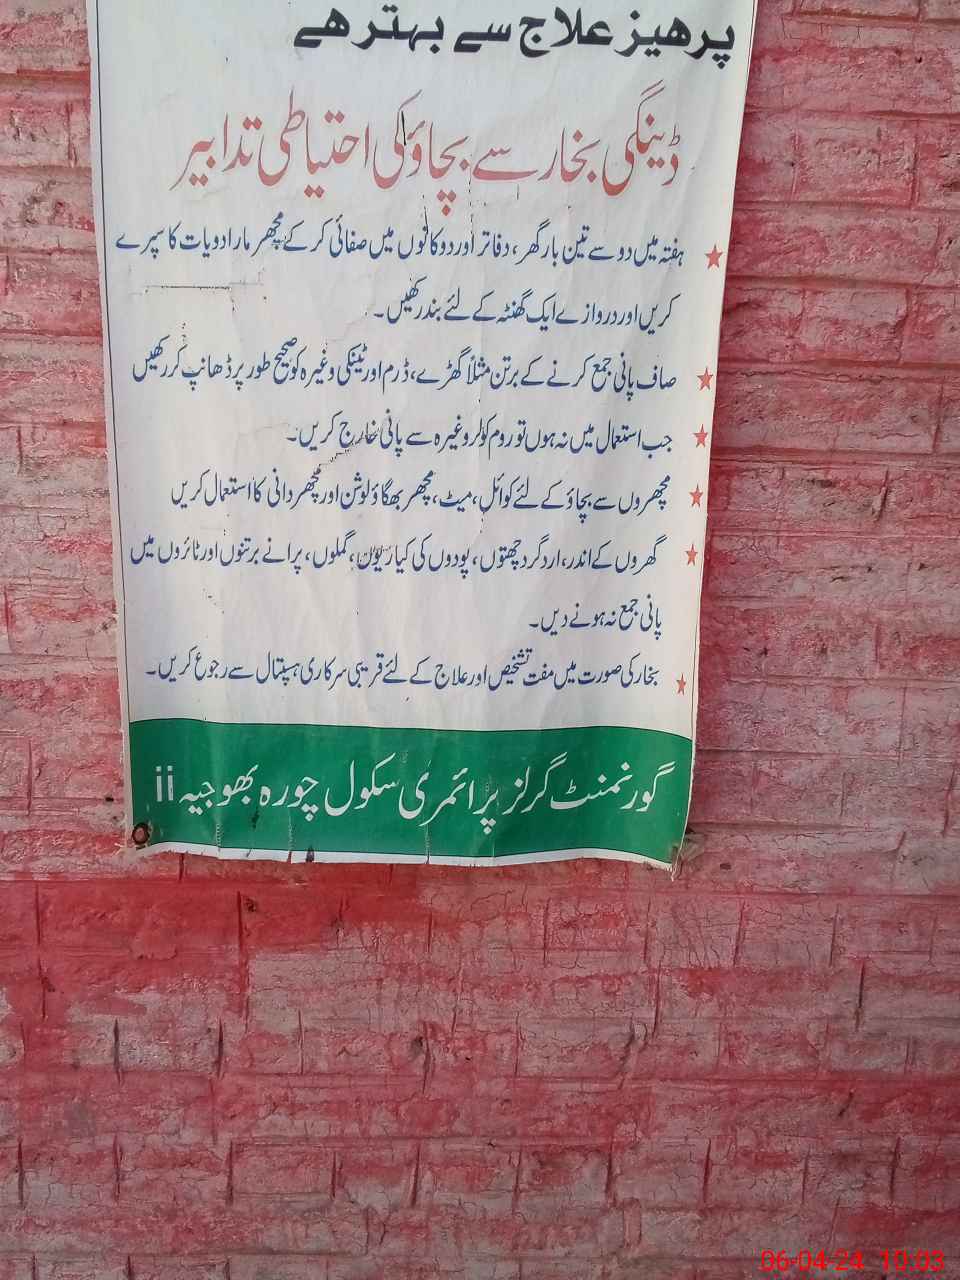 پرھیز علاج سے بہتر ھے
ڈینگی بخار سے بچاؤ کی احتیاطی تدابیر
ہفتہ میں دو سے تین بار گھر، دفاتر اور دوکانوں میں صفائی کر کے مچھر مار ادویات کا سپرے
کریں اور دروازے ایک گھنٹہ کے لئے بند رکھیں۔
صاف پانی جمع کرنے کے برتن مثلاً گھڑے، ڈرم اور ٹینکی وغیرہ کو صحیح طور پر ڈھانپ کر رکھیں
جب استعمال میں نہ ہوں تو روم کولر وغیرہ سے پانی خارج کریں۔
مچھروں سے بچاؤ کے لئے کوائل، میٹ، مچھر بھگاؤ لوشن اور مچھر دانی کا استعمال کریں
گھروں کے اندر، ارد گرد چھتوں، پودوں کی کیاریوں، گملوں، پرانے برتنوں اور ٹائروں میں
پانی جمع نہ ہونے دیں۔
بخار کی صورت میں مفت تشخیص اور علاج کے لئے قریبی سرکاری ہسپتال سے رجوع کریں۔
گورنمنٹ گرلز پرائمری سکول چورہ بھوجیہ ii
06-04-24 10:03